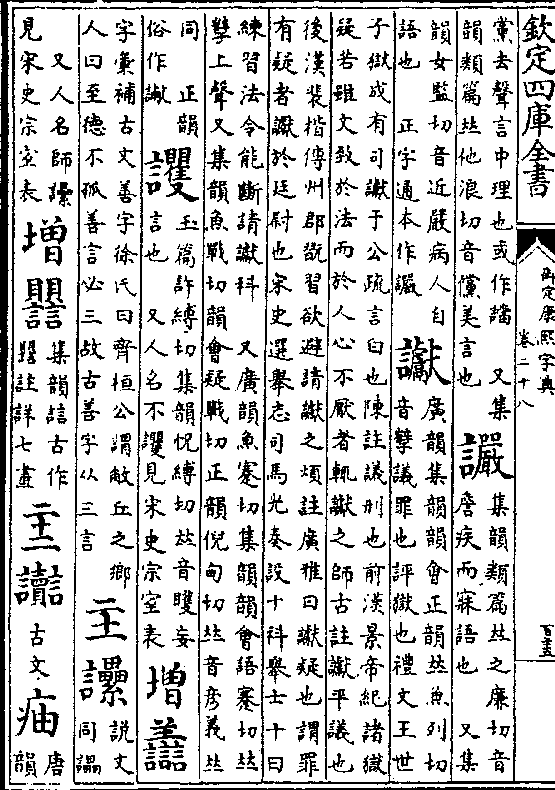 欽定四庫全書
御定康熙字典
卷二十八
黨去聲言中理也或作讜 又集
韻類篇𠀤他浪切音儻美言也
讝
集韻類篇𠀤之廉切音
詹疾而寐語也 又集
韻女監切音近嚴病人自
語也 正字通本作讝
讞
廣韻集韻韻會正韻𠀤魚列切
音孽議罪也評獄也禮文王世
子獄成有司讞于公疏言白也陳註議刑也前漢景帝紀諸獄
疑若雖文致於法而於人心不厭者輒讞之師古註讞平議也
後漢裴楷傳州郡翫習欲避請讞之煩註廣雅曰讞疑也謂罪
有疑者讞於廷尉也宋史選舉志司馬光奏設十科舉士十曰
練習法令能斷請讞科 又廣韻魚蹇切集韻韻會語蹇切𠀤
孽上聲又集韻魚戰切韻會疑戰切正韻倪甸切𠀤音彥義𠀤
同 正韻
俗作讞
玉篇許縛切集韻怳縛切𠀤音矍妄
言也 又人名不戄見宋史宗室表
增
譱
字彙補古文善字徐氏曰齊桓公謂敝丘之鄉
人曰至德不孤善言必三故古善字从三言
說文
同讄
又人名師
見宋史宗室表
增
集韻譶古作
註詳七畫
古文
唐
韻